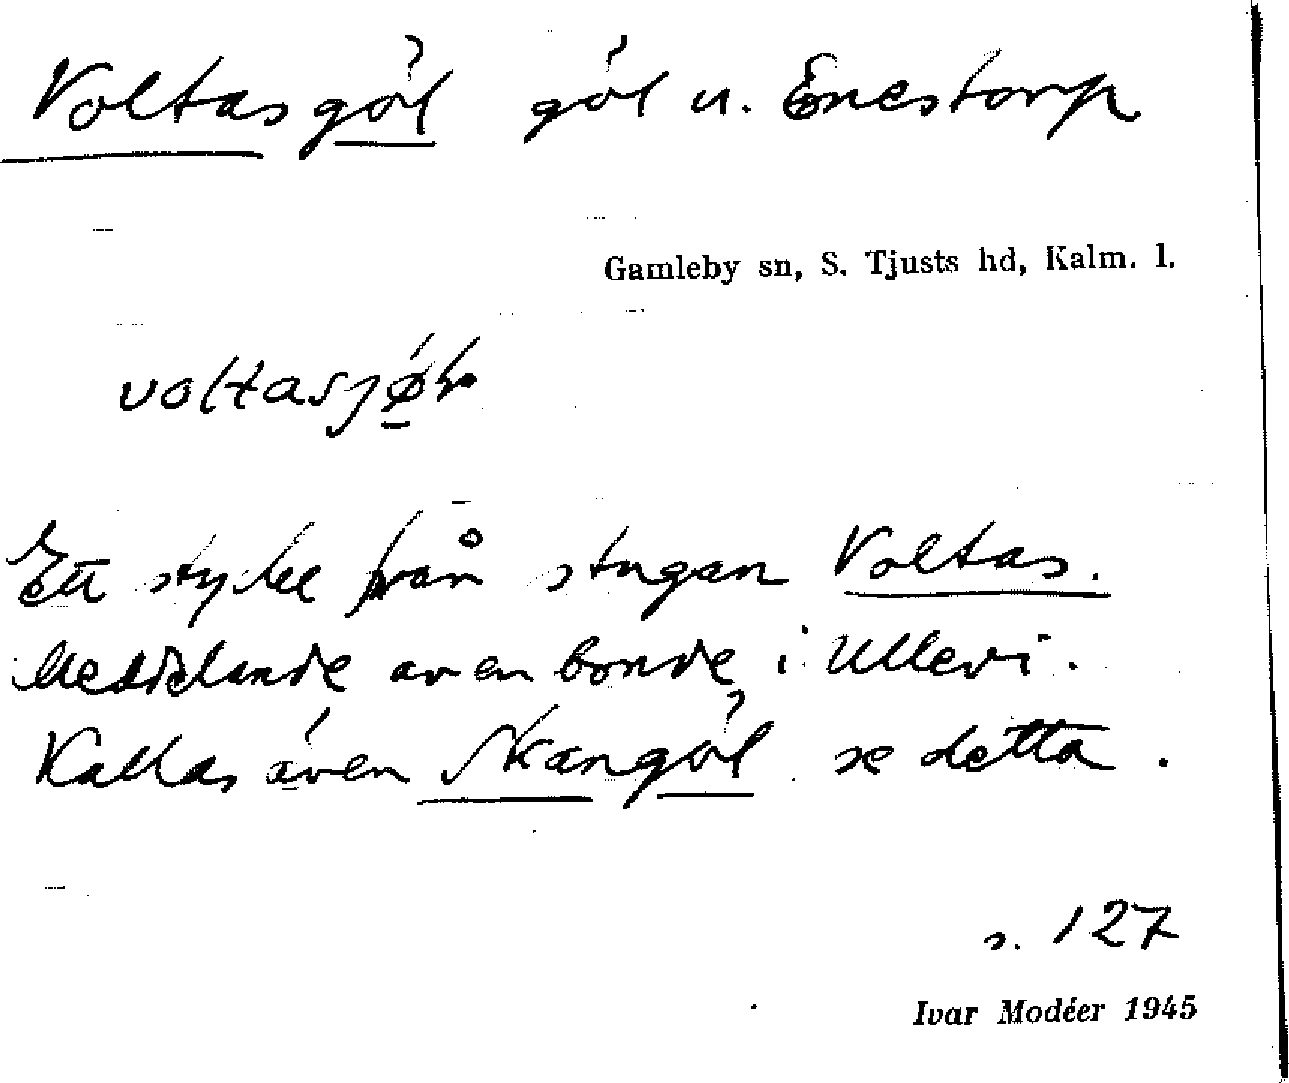 Voltasgöl göl u. Enestorp
Gamleby sn, S. Tjusts hd, Kalm. l.
Ett stycke från stugan Voltas.
Meddelande av en bonde i Ullevi.
Kallas även Skangöl se detta.
s. 127
Ivar Modéer 1945